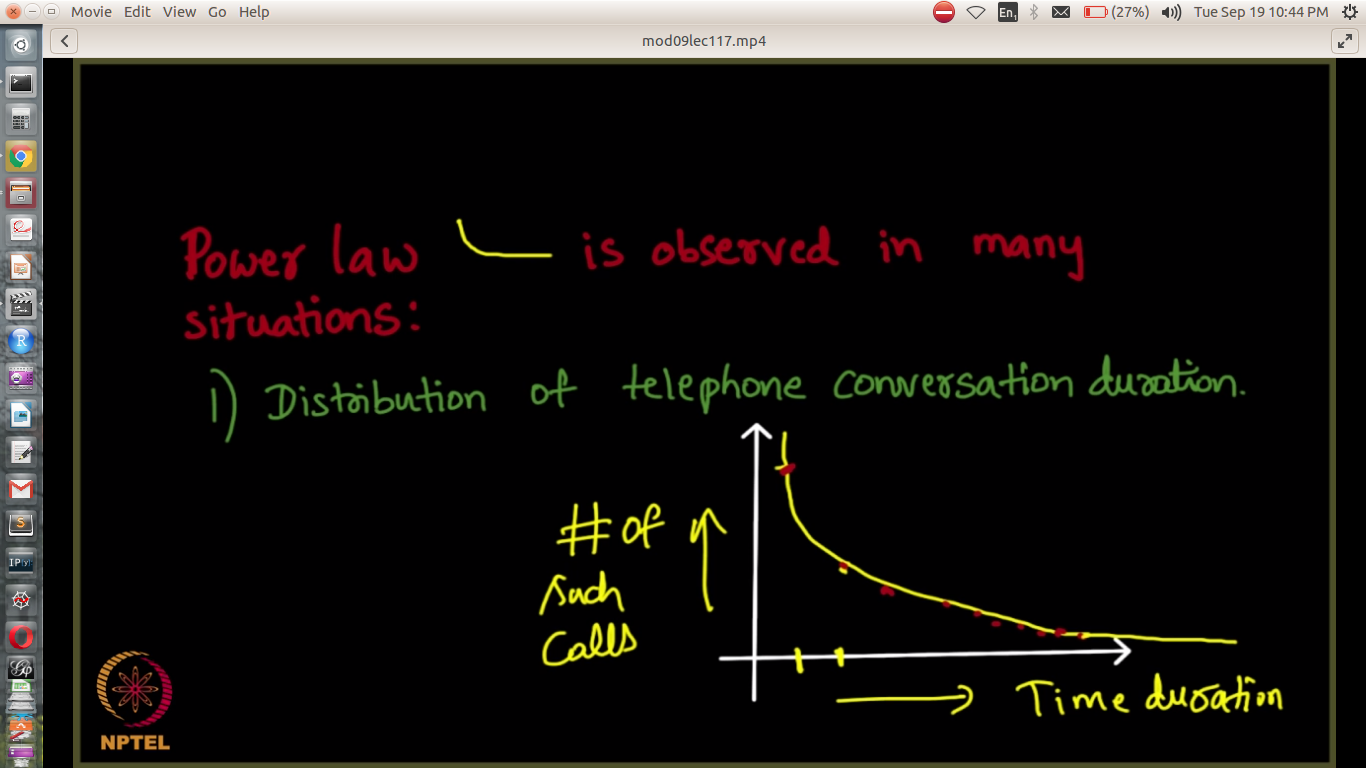 Movie Edit View Go Help
En1 (27%) Tue Sep 19 10:44 PM
mod09lec117.mp4
Power law is observed in many
situations:
1) Distribution of telephone conversation duration.
# of
such
calls
Time duration
NPTEL